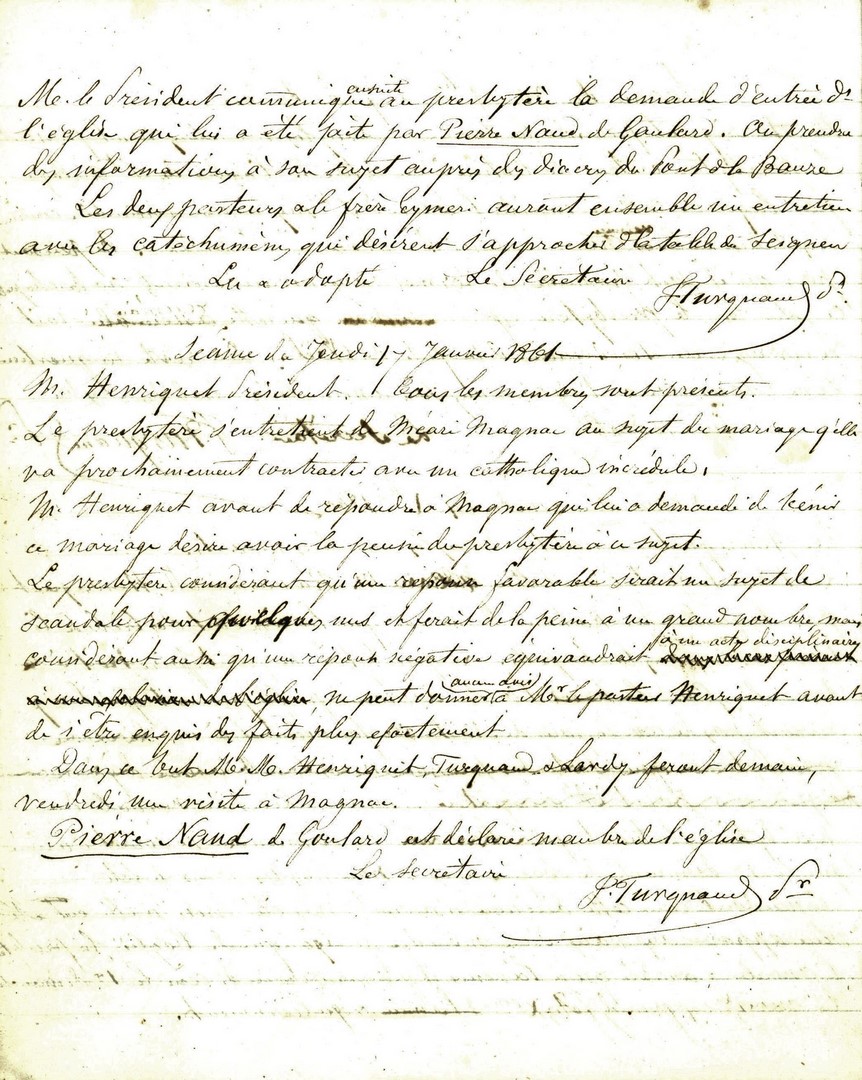 Mr. le Président communique ensuite au presbytère la demande d'entrée ds
l'église qui lui a été faite par Pierre Naud de Goulard. On prendra
des informations à son sujet auprès des diacres du Pont de la
Les deux pasteurs et le frère Eymeri auront ensemble un entretien
avec les catéchumènes qui désirent s'approcher de la table du Seigneur
Lu & adopté Le Secrétaire
J. Turgnaud Pr.
Séance du Jeudi 17 Janvier 1861
M. Henriquet Président. Tous les membres sont présents.
Le presbytère s'entretient de Magnac au sujet du mariage qu'elle
va prochainement contracter avec un catholique incrédule.
M. Henriquet avant de répondre à Magnac qui lui a demandé de bénir
ce mariage désire avoir la pensée du presbytère à ce sujet.
Le presbytère considérant qu'une réponse favorable serait un sujet de
scandale pour quelques uns et ferait de la peine à un grand nombre mais
considérant aussi qu'une réponse négative équivaudrait à un acte disciplinaire
ne peut donner aucun avis à Mr. le pasteur Henriquet avant
de s'être enquis des faits plus exactement
Dans ce but M. M. Henriquet, Turgnaud & Lardy feront demain,
vendredi une visite à Magnac.
Pierre Naud de Goulard est déclaré membre de l'église
Le secrétaire
J. Turgnaud Pr